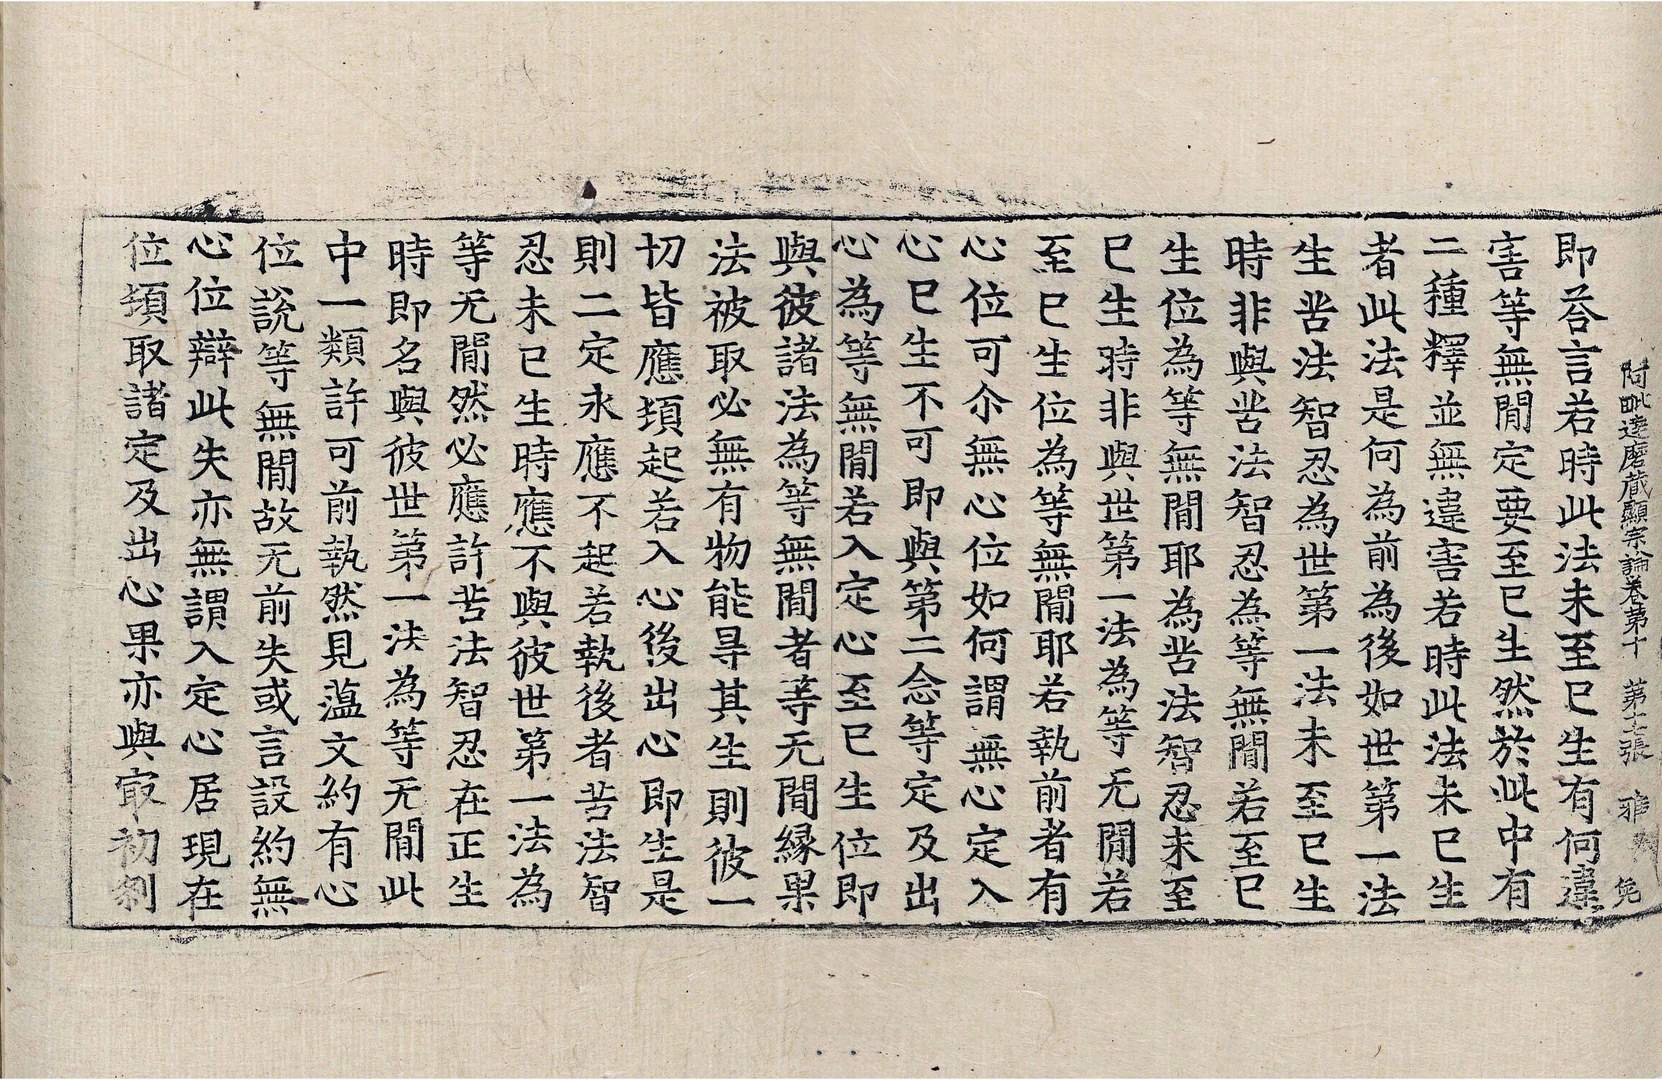 阿毗達磨藏顯宗論卷第十　第七張　雅
即荅言若時此法未至已生有何違
害等無間定要至已生然於此中有
二種釋並無違害若時此法未已生
者此法是何為前為後如世第一法
生苦法智忍為世第一法未至已生
時非與苦法智忍為等無間若至已
生位為等無間耶為苦法智忍未至
已生時非與世第一法為等无間若
至已生位為等無間耶若執前者有
心位可尒無心位如何謂無心定入
心已生不可即與第二念等定及出
心為等無間若入定心至已生位即
與彼諸法為等無間者等无間緣果
法被取必無有物能㝵其生則彼一
切皆應頓起若入心後出心即生是
則二定永應不起若執後者苦法智
忍未已生時應不與彼世第一法為
等无間然必應許苦法智忍在正生
時即名與彼世第一法為等无間此
中一類許可前執然見薀文約有心
位說等無間故无前失或言設約無
心位辯此失亦無謂入定心居現在
位頓取諸定及出心果亦與㝡初剎